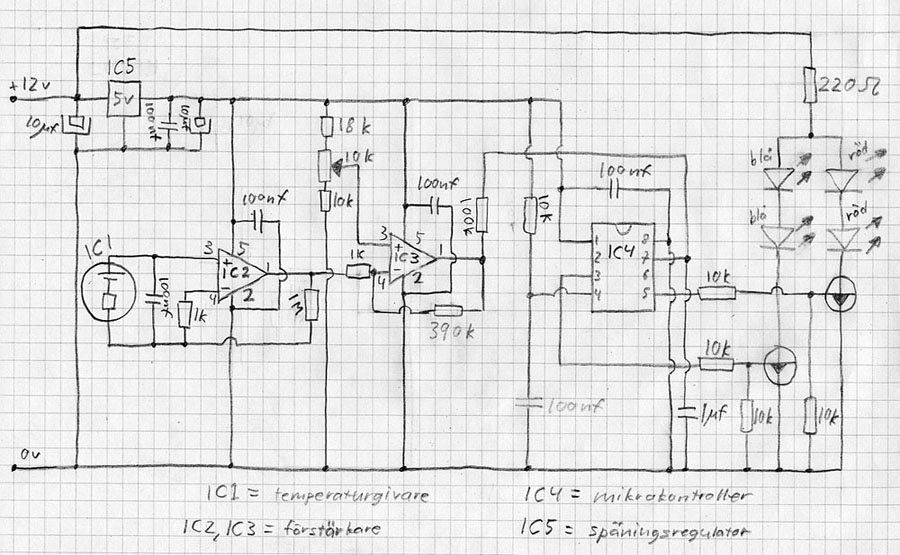 IC5
+12v
5v
220Ω
10µF
100nF
10µF
18k
10k
10k
blå
röd
100nF
100nF
100nF
100k
10k
IC1
blå
röd
3
+
5
IC2
1
-
4
2
3
+
5
IC3
1
-
4
2
1k
1
2
3
4
IC4
8
7
6
5
10k
100nF
1k
390k
10k
100nF
1µF
10k
10k
0v
IC1 = temperaturgivare
IC4 = mikrokontroller
IC2, IC3 = förstärkare
IC5 = späningsregulator